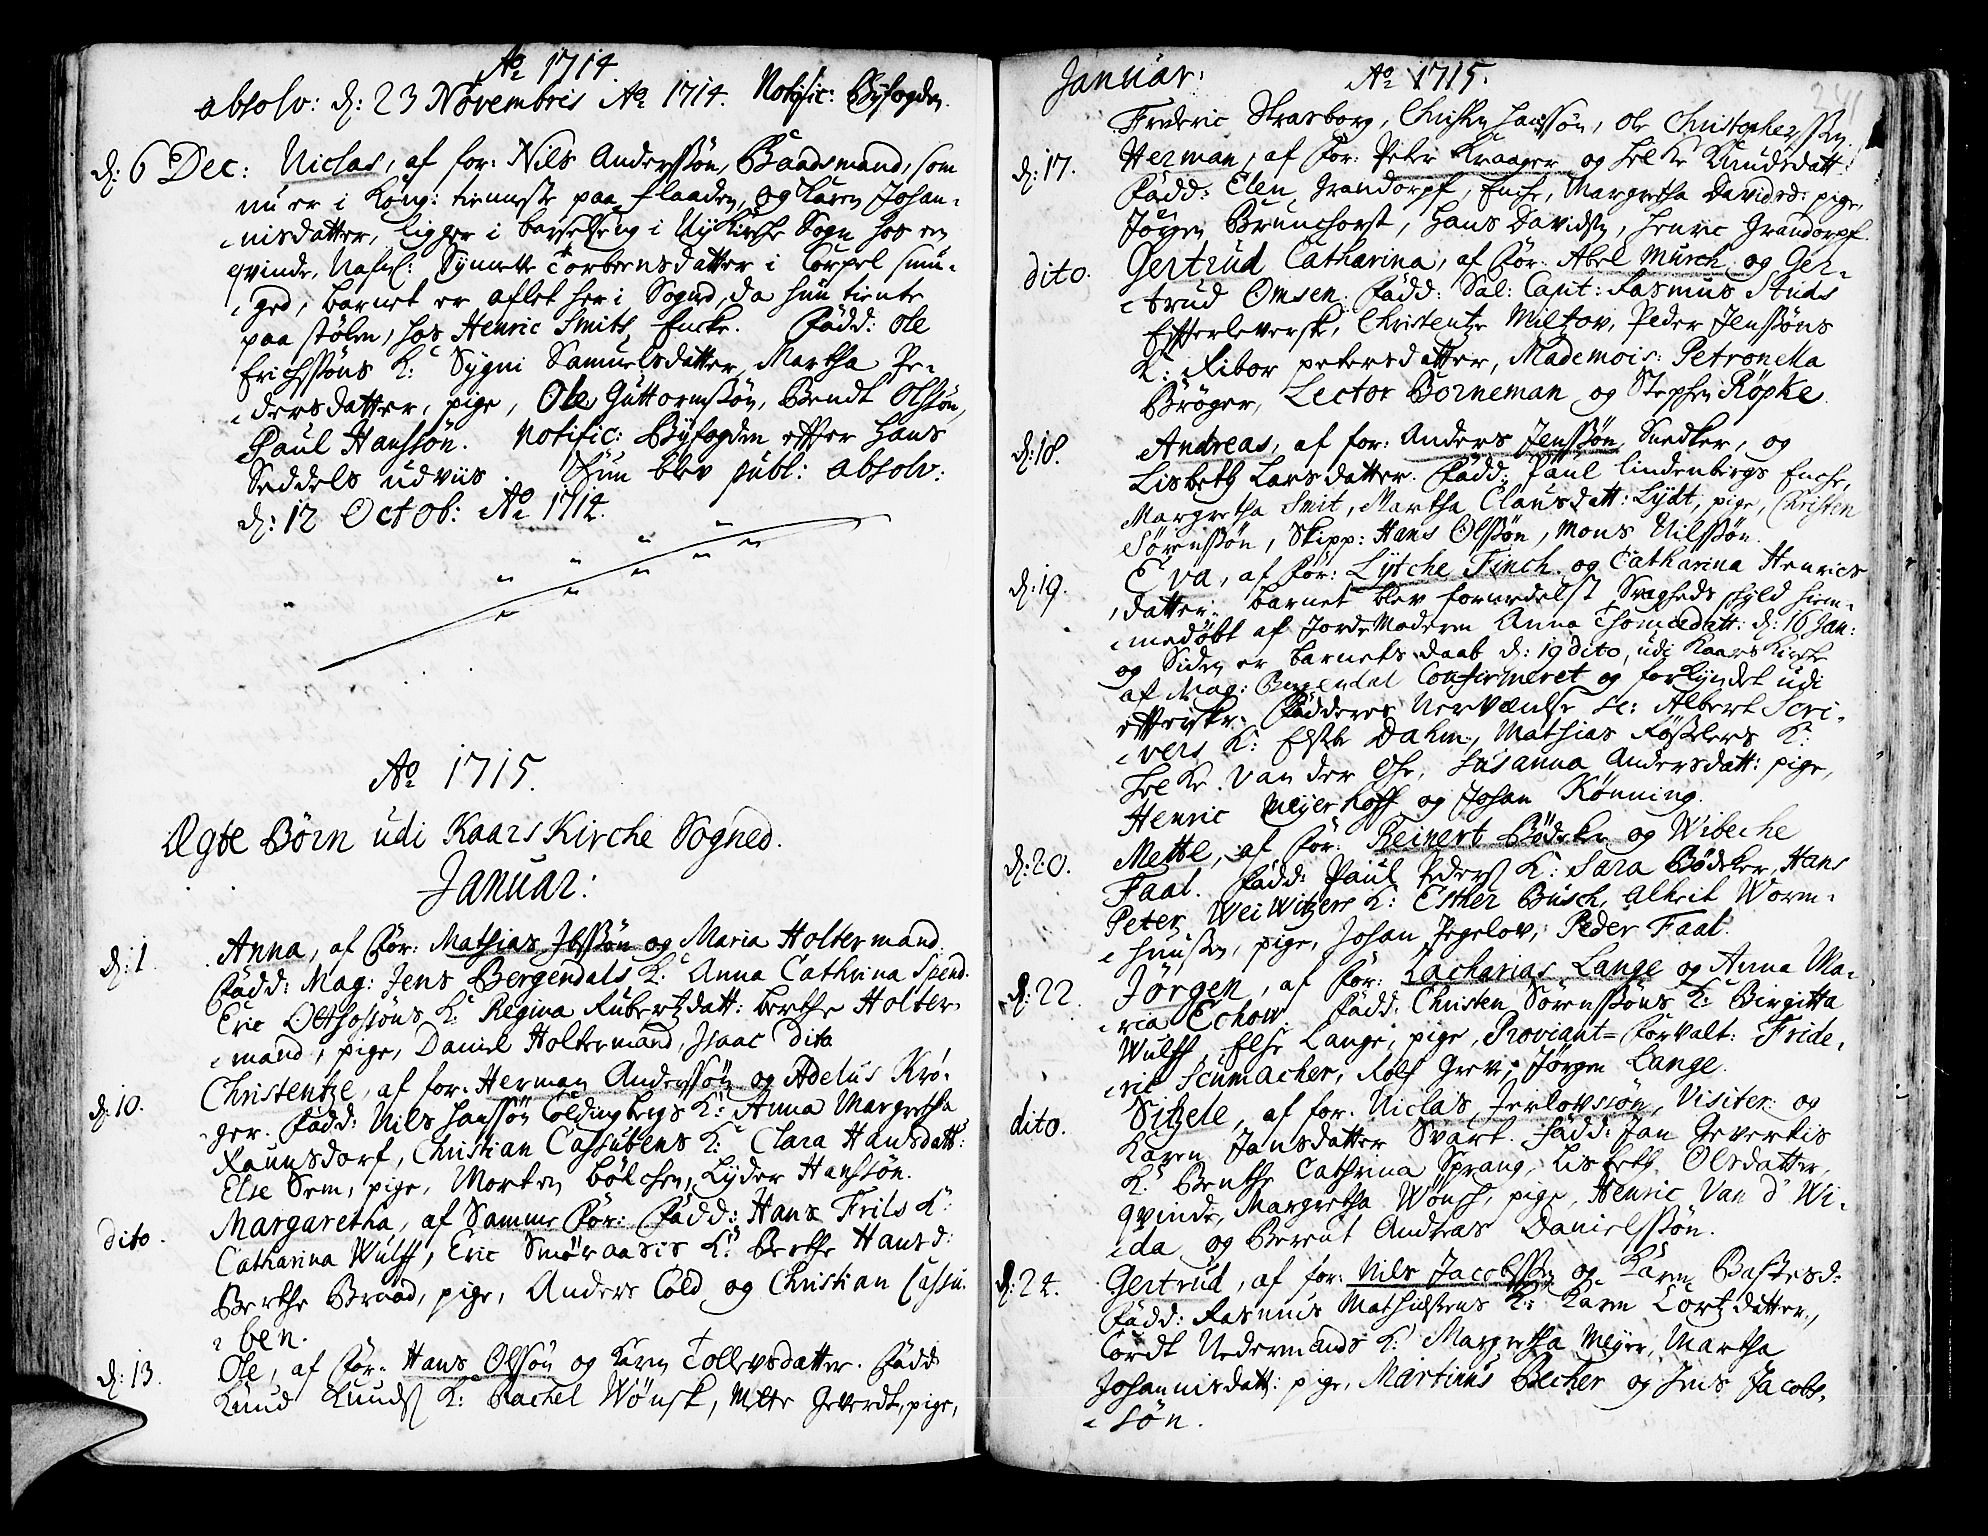 Ao 1714.
absolv: d: 23 Novembris Ao 1714. Notific: Byfogden.
d: 6 Dec: Niclas, af for: Nils Anderssøn, Baadsmand, som
nu er i Kong: tienneste paa flaaden, og Karen Johan-
nisdatter, ligger i barselseng i NyKirche Sogn hos en
qvinde, Nafnl: Synnette Torbensdatter i Torpel smu-
ged, barnet er aflet her i Sogned, da hun tiente
paa stølen, hos Henric Smits Encke. Fadd: Ole
Erichssøns K: Sygni Samuelsdatter, Martha Pe-
dersdatter, pige, Ole Guttormssøn, Bendt Olssøn,
Paul Hanssøn. Notific: Byfogden efter Hans
Seddels udviis. Hun blev publ: absolv:
d: 12 Octob: Ao 1714.
Ao 1715.
Ægte Børn udi KaarsKirche Sogned.
Januar:
d: 1. Anna, af For: Mathias Ibssøn og Maria Holtermand.
Fadd: Mag: Jens Bergendals K: Anna Cathrina Spend.
Eric Olthossøns K: Regina Rubertzdatt: Berthe Holter-
mand, pige, Daniel Holtermand, Isaac dito
d: 10. Christentze, af for: Herman Anderssøn og Adelus Krø-
ger. Fadd: Nils Hanssøn Coldingbergs K: Anna Margretha
Raunsdorf, Christian Cassubens K: Clara Hansdatt:
Else Sem, pige, Morten Bølchen, Lyder Hanssøn.
dito. Margaretha, af Samme For: Fadd: Hans Frils K:
Catharina Wulff, Eric Smøraasis K: Berthe Hansd:
Berthe Braad, pige, Anders Cold og Christian Cassu-
ben.
d: 13. Ole, af For: Hans Olssøn og Karen Tollevsdatter. Fadd:
Knud Knuds K: Rachel Wønsk, Mette Geverdt, pige,
Januar: Ao 1715. 241
Frederic Strasborg, Christen Hanssøn, Ole Christophersøn
d: 17. Herman, af For: Peter Kraager og Helke Knudsdatt:
Fadd: Elen Grandorpf, Enche, Margretha Davidsd: pige,
Jørgen Brunchorst, Hans Davidsen, Henric Grandorpf.
dito. Gertrud Catharina, af For: Abel Murch og Ger-
trud Omsen. Fadd: Sal: Capt: Rasmus Studs
Efterleverske, Christentze Miltzov, Peder Jenssøns
K: Ribor petersdatter, Mademois: Petronella
Brøger, Lector Borneman og Stephen Röpke.
d: 18. Andreas, af for: Anders Jenssøn Snedker, og
Lisbeth Larsdatter. Fadd: Paul Lindenbergs Enche,
Margretha Smit, Martha Clausdatt: Lydt, pige, Christen
Sørenssøn, Skipp: Hans Olssøn, Mons Nilssøn.
d: 19. Eva, af For: Lytche Finch og Catharina Henrics
datter. Barnet blev formedelst Svagheds skyld hiem-
medøbt af JordeModeren Anna Thomædatt: d: 16 Jan:
og Siden er barnets daab d: 19 dito, udi Kaars Kirche
af Mag: Bergendal Confirmeret og forkyndet udi
efterskr: Fadderes Nerværelse sc: Albert Scri-
vers K: Elske Dahm, Mathias Røslers K:
Helke van der Ohe, Susanna Andersdatt: pige,
Henric Meyerhoff og Johan Kønning.
d: 20. Mette, af For: Reinert Bödeker og Wibeche
Faal. Fadd: Paul Peders K: Sara Bödeker, Hans
Peter WeiWitzers K: Esther Busch, Alheit Worm-
huusen, pige, Johan Pegelov, Peder Faal.
d: 22. Jörgen, af For: Zacharias Lange og Anna Ma-
ria Echow. Fadd: Christen Sörenssøns K: Birgitta
Wulff, Else Lange, pige, Proviant=Forvalt: Fride-
ric Scumacher, Rolf Grev, Jørgen Lange.
dito. Sitzele, af for: Niclas Jerlovssøn, Visiter: og
Karen Jansdatter Svart. Fadd: Jan Geverttis
K: Benthe Cathrina Sprang, Lisbeth Olsdatter,
qvinde, Margretha Wønsk, pige, Henric Van d' Wi-
da og Berent Andreas Danielssøn.
d: 24. Gertrud, af for: Nils Jacobssøn og Karen Bastesd:
Fadd: Rasmus Mathissens K: Karen Cortzdatter,
Cordt Nedermands K: Margretha Meyer, Martha
Johannisdatt: pige, Martinus Becher og Jens Jacobs-
søn.